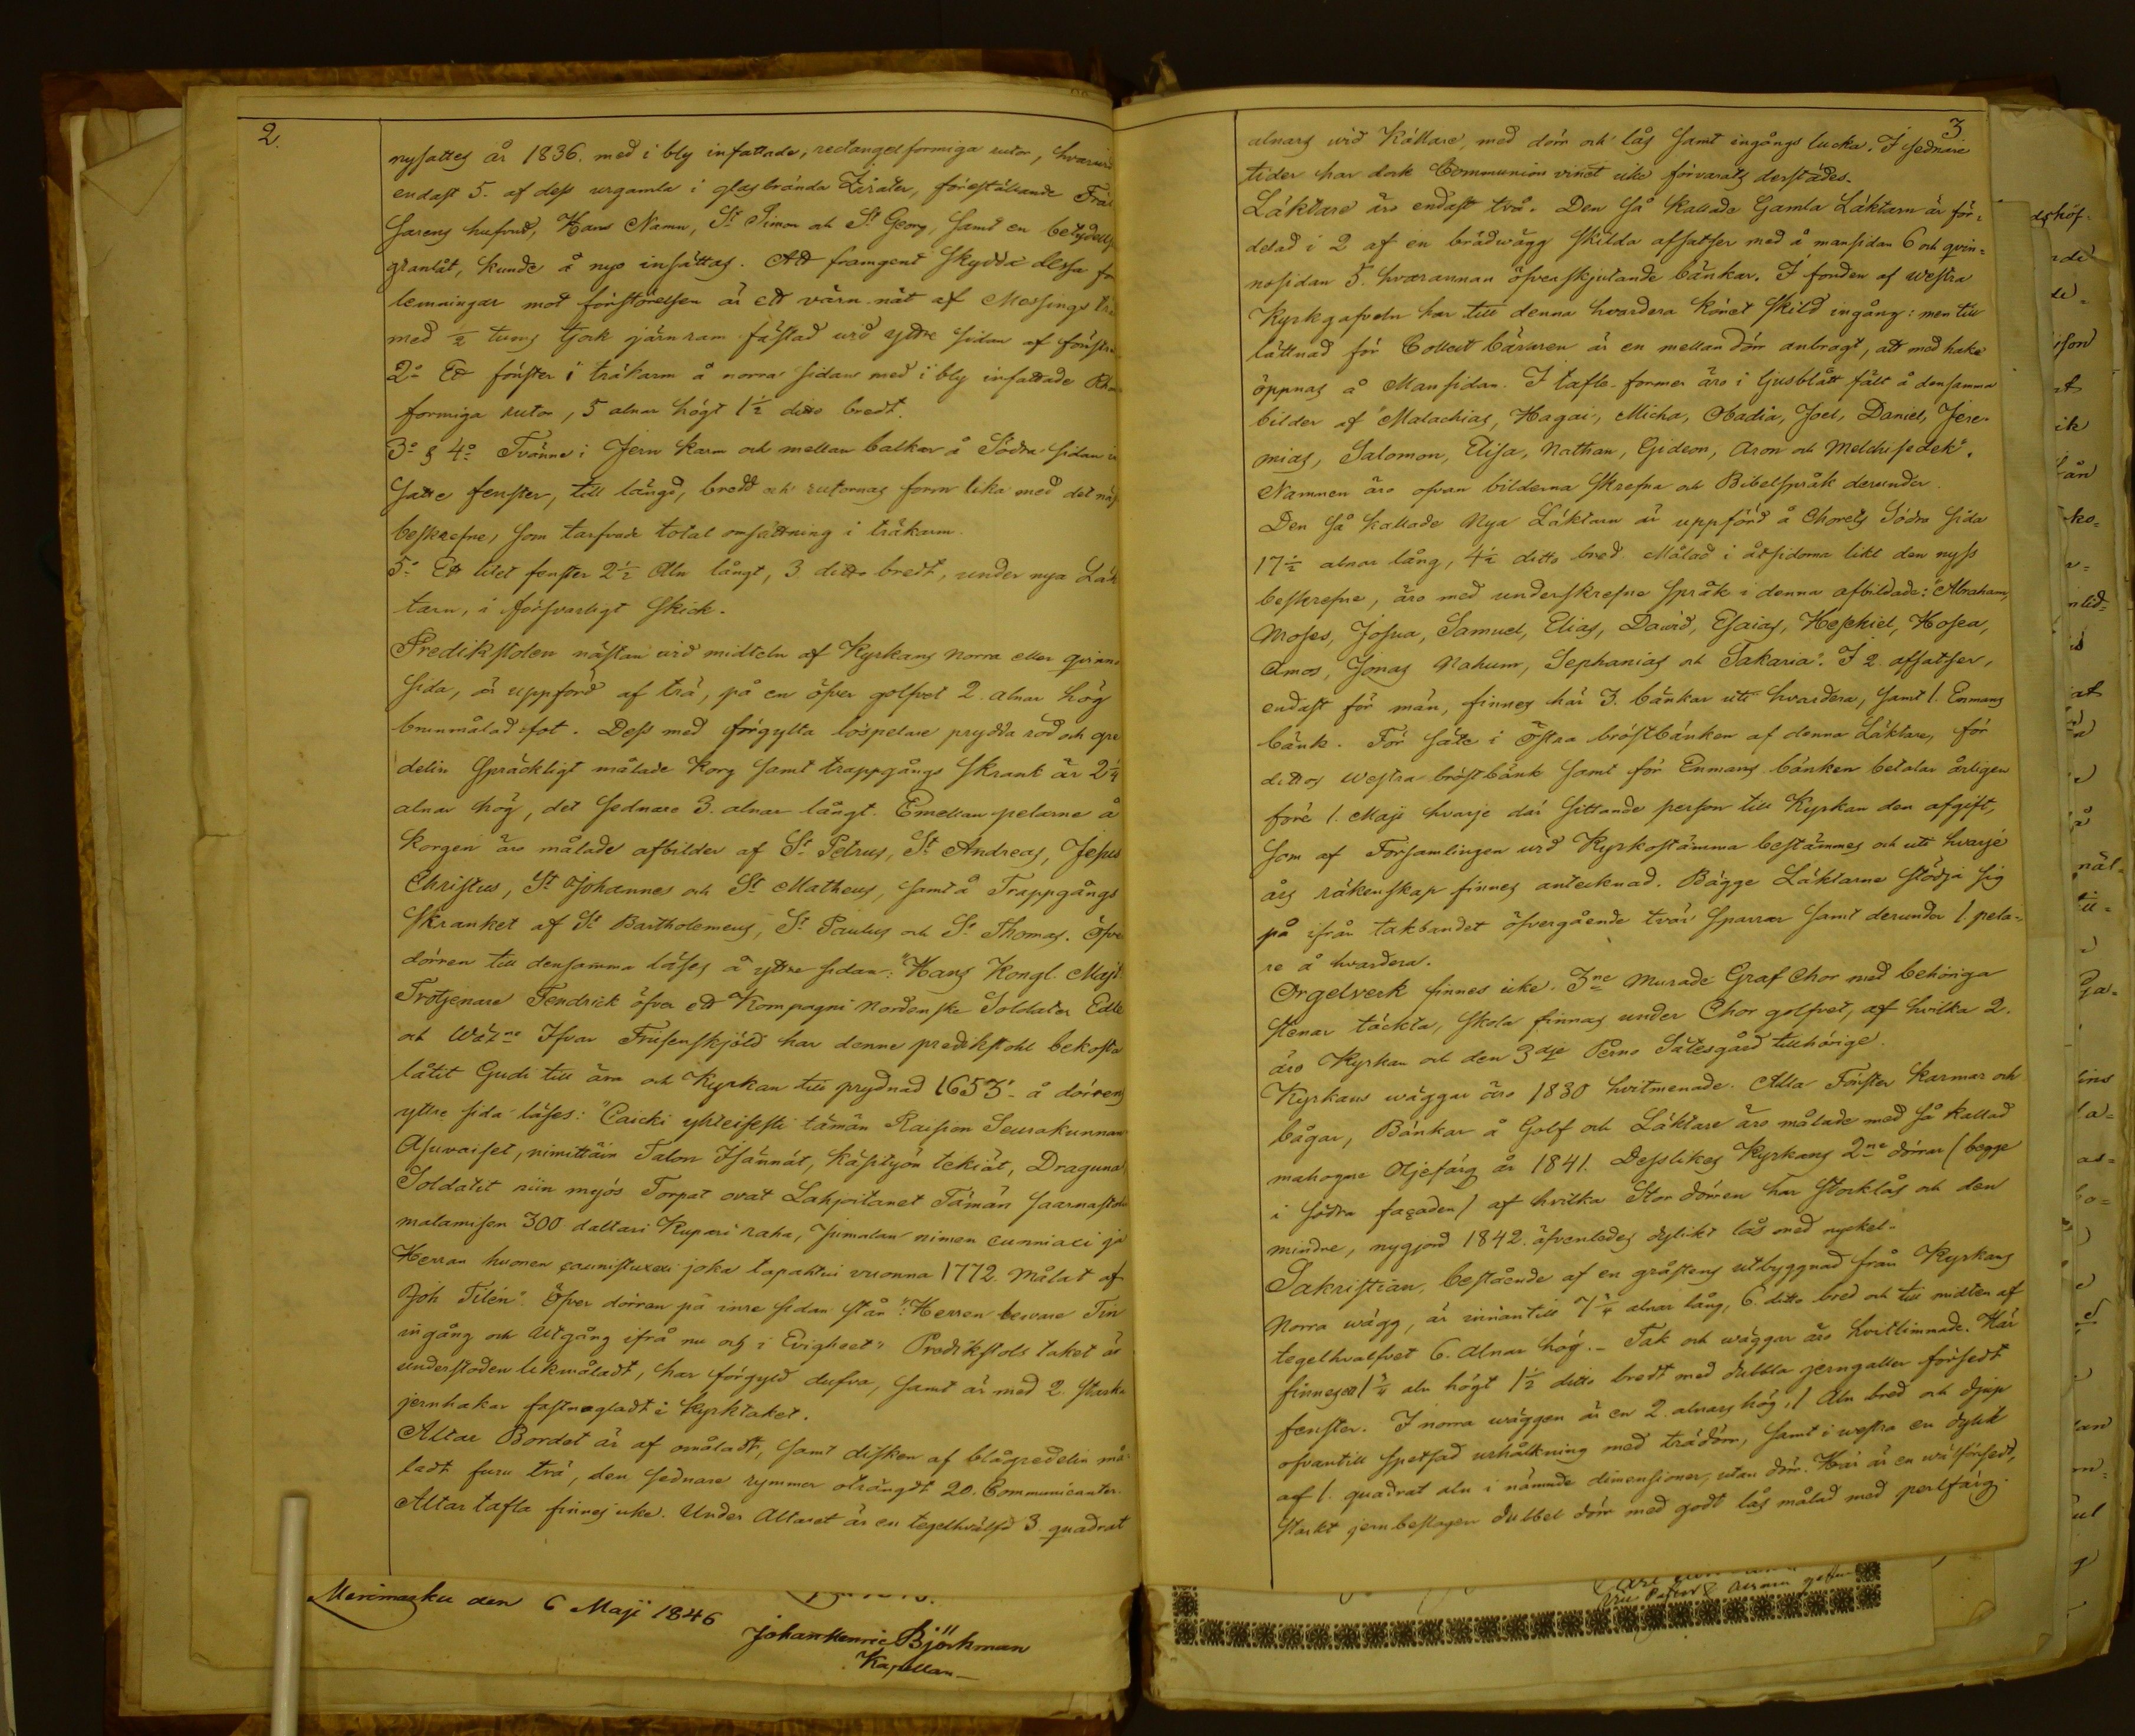 2.
nysattes år 1836. med i bly infattade, rectangelformiga rutor, hvarwid
endast 5. af dess urgamla i glas brända Zirater, föreställande Fräl
sarens hufvud, Hans Namn, St Simon och St Georg, samt en betydelse
granlåt, kunde å nyo insättas. Att framgent skydda dessa
lemningar mot förstörelsen är ett värn nät af Messings
med ½ tums tjock järnram fästad wid yttre sidan af fönstr
2o Ett fönster i träkarm å norra sidan med i bly infattade
formiga rutor, 5 alnar högt 1½ ditto bredt.
3o & 4o Tvänne i Jern karm och mellan balkar å Södra sidan
satte fenster, till längd, bredd och rutornas form lika med det näst
beskrefne, som tarfvade total omsättning i träkarm.
5o Ett litet fenster 2½ Aln långt, 3 ditto bredt, under nya Läk
taren, i försvarligt skick.
Predikstolen nästan wid midteln af Kyrkans norra eller qvinno
sida, är uppförd af trä, på en öfver golfvet 2. alnar hög
brunmålad fot. Dess med förgylta löspelare prydda röd och gre
delin spräckligt målade Korg samt trappgångs skrank är 2¼
alnar hög, det sednare 3. alnar långt. Emellan pelarne å
korgen äro målade afbilder af St Petrus, St Andreas, Jesus
Christus, St Johannes och St Matheus, samt å Trappgångs
skranket af St Bartholemeus, St Paulus och St Thomas. Öfver
dörren till densamma läses å yttre sidan: "Hans Kongl. Majts
Trotjenare Fendrick öfver ett Kompagni Nordenske Soldater Edle
och Wälne Ifvar Friisenskjöld har denne predikstohl bekosta
låtit Gudi till ära och Kyrkan till prydnad 1653"- å dörrens
yttre sida läses: "Caicki yhteisesti tämän Raision Seurakunnan
Asuvaiset, nimittäin Talon Isännät, Käsityön tekiät, Draguna
Soldatit niin myös Torpat ovat Lahjoitanet Tämän Saarnastolin
malamisen 300 daltari Kupari raha, Jumalan nimen cunniaci ja
Herran huonen caunistuxexi joka tapahtui vuonna 1772. Målat af
Joh Tilén". Öfver dörren på inre sidan står "Herren bevare Tin
ingång och Utgång ifrå nu och i Evigheet" Predikstols taket är
understoden lekmåladt, har förgyld dufva, samt är med 2. starka
jernhakar fastnagladt i Kyrktaket.
Altar Bordet är af omåladt, samt disken af blågredelin må
ladt furu trä, den sednare rymmer otrångdt 20. Communicanter.
Altar tafla finnes icke. Under Altaret är en tegelhvälfd 3. quadrat
Merimasku den 6 Maji 1846
Johan Henric Björkman
Kapellan
3
alnars wid Källare, med dörr och lås samt ingångs lucka. I sednare
tider har dock Communion vinet icke förvarats derstädes.
Läktare äro endast två. Den så kallade Gamla Läktarn är för=
delad i 2 af en brädwägg skilda afsatser med å mansidan 6 och qvin=
nosidan 5. hvarannan öfverskjutande bänkar. I fonden af westra
Kyrkgafveln har till denna hvardera könet skild ingång: men till
lättnad för Collect bäraren är en mellan dörr anbragt, att med hake
öppnas å Mansidan. I tafle-former äro i ljusblått fält å densamma
bilder af "Malachias, Hagai, Micha, Obadia, Joel, Daniel, Jere-
mias, Salomon, Elisa, Nathan, Gideon, Aron och Melchisedek".
Namnen äro ofvan bilderna skrefna och Bibelspråk derunder.
Den så kallade Nya Läktarn är uppförd å Chorets Södra sida
17½ alnar lång, 4½ ditto bred. Målad i åtsidorna likt den nyss
beskrefne, äro med underskrefne språk i denna afbildade: "Abraham,
Moses, Josua, Samuel, Elias, Dawid, Esaias, Heskiel, Hosea,
Amos, Jonas Nahum, Sephanias och Sakaria". I 2 afsatser,
endast för män, finnes här 3. bänkar uti hvardera, samt 1. Enmans
bänk. För säte i Östra bröstbänken af denna Läktare, för
dittos Westra bröstbänk samt för Enmans bänken betalar årligen
före 1. Maji hvarje där sittande person till Kyrkan den afgift,
som af Församlingen wid Kyrkostämma bestämmes och uti hvarje
års räkenskap finnes antecknad. Bägge Läktarne stödja sig
på ifrån takbandet öfvergående tvär sparrar samt derunder 1 pela-
re å hvardera.
Orgelverk finnes icke. 3ne Murade Graf Chor med behöriga
stenar täckta, skola finnas under Chor golfvet, af hvilka 2.
äro Kyrkan och den 3dje Perno Sätesgård tillhörige.
Kyrkans wäggar äro 1830 hvitmenade. Alla Fönster karmar och
bågar, Bänkar å Golf och Läktare äro målade med så kallad
mahogne Oljefärg år 1841. Desslikes Kyrkans 2ne dörrar (begge
i södra façaden) af hvilka Stor dörren har stocklås och den
mindre, nygjord 1842. äfvenledes dylikt lås med nyckel.
Sakristian, bestående af en gråstens utbyggnad från Kyrkans
Norra wägg, är innantill 7¼ alnar lång, 6. ditto bred och till midten af
tegelhvalfvet 6. Alnar hög. - Tak och wäggar äro hvitlimmade. Här
finnes ett 1¼ aln högt 1½ ditto bredt med dubbla jerngaller försedt
fenster. I norra wäggen är en 2. alnars hög, 1 Aln bred och djup
ofvantill spetsad urhålkning med trädörr, samt i westra en dylik
af 1. quadrat aln i nämnde dimensioner, utan dörr. Här är en wälförsedt,
starkt jernbeslagen dubbel dörr med godt lås målad med perlfärg.